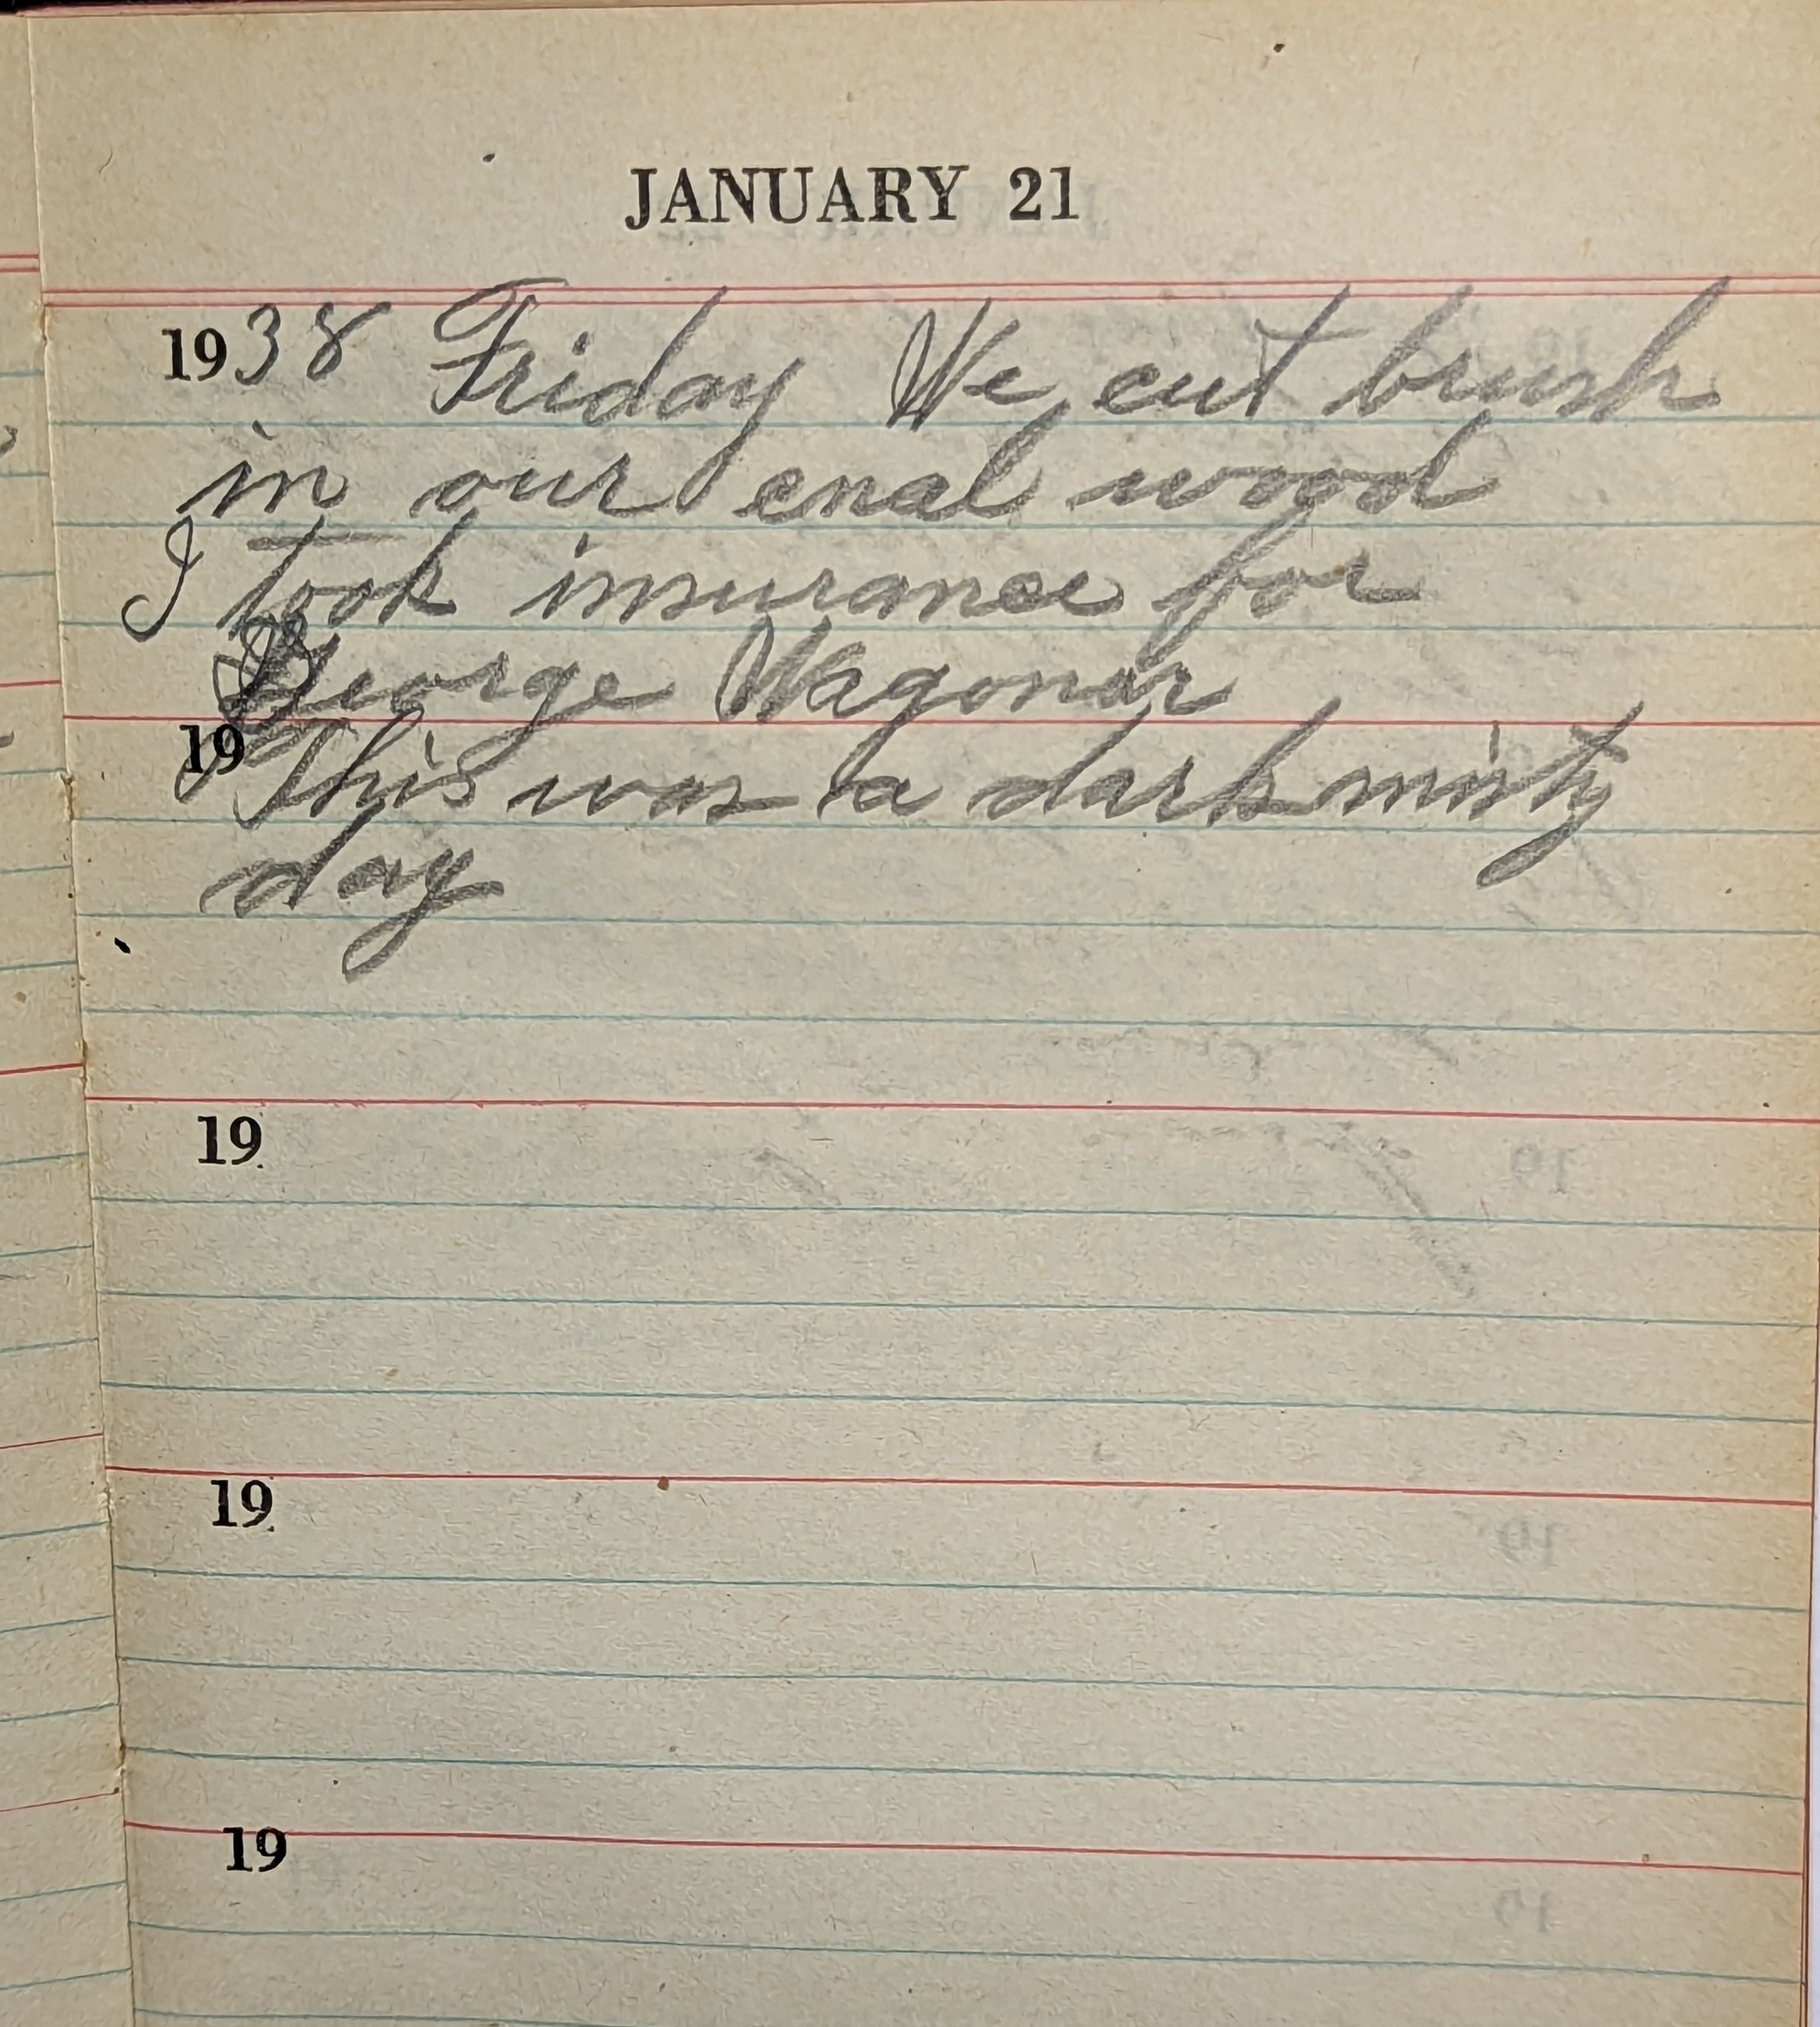 JANUARY 21
1938 Friday We cut brush
in our enal wood
I took insurance for
George Wagonar
19 This was a dark misty
day
19
19
19